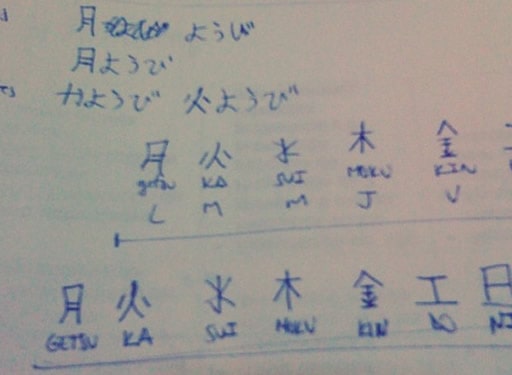 月 ようび
月ようび
カようび 火ようび
月 火 水 木 金
getsu KA SUI MOKU KIN
L M M J V
月 火 水 木 金 工 日
GETSU KA SUI MOKU KIN DO NI